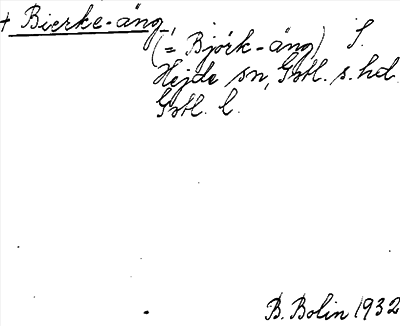 + Bierke-äng
(= Björk-äng) S.
Hejde sn, Gotl. s. hd.
Gotl. l.
B. Bolin 1932